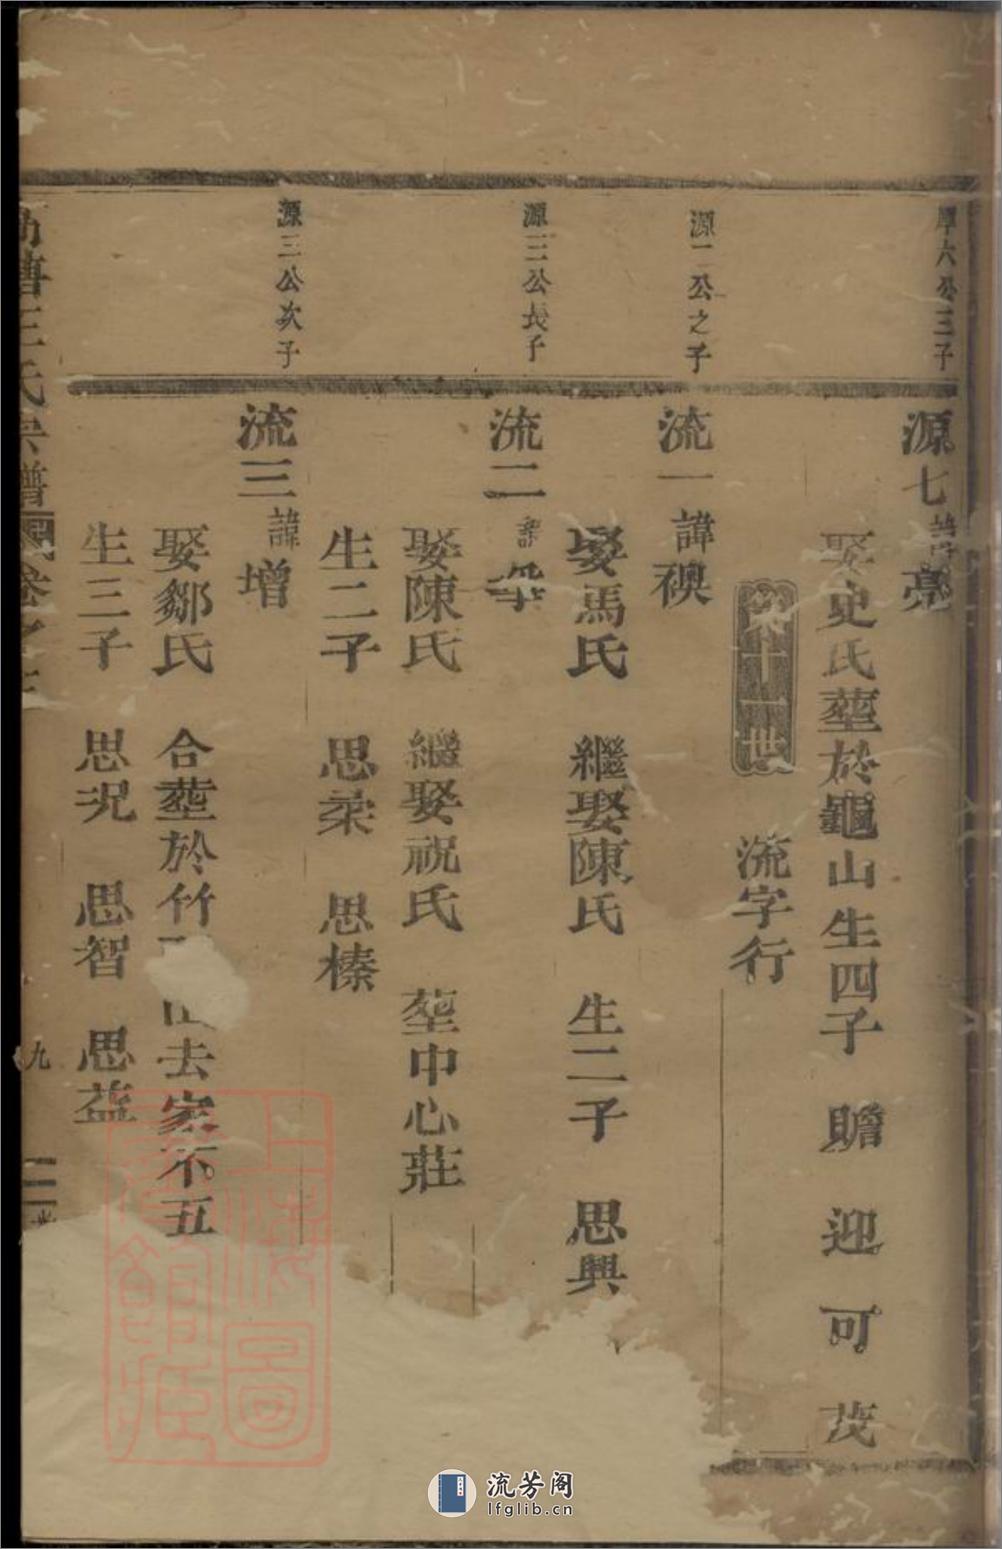 六公三子
源七諱亮
娶史氏塟於龜山生四子 贍 迎 可 茂
第十一世 流字行
源二公之子
流一諱襖
娶馬氏 繼娶陳氏 生二子 思興
源三公長子
流二諱
娶陳氏 繼娶祝氏 塟中心莊
生二子 思柔 思榛
源三公次子
流三諱增
娶鄒氏 合塟於竹 去家不五
生三子 思況 思智 思益
王氏宗譜 卷之 九
上海圖書館藏
流芳阁
lfglib.cn